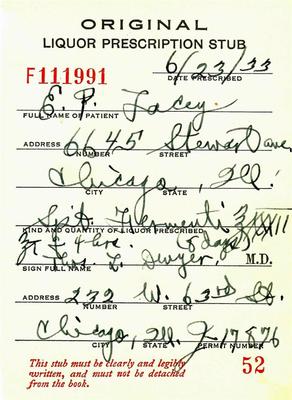 ORIGINAL
LIQUOR PRESCRIPTION STUB
6/23/33
F111991
DATE PRESCRIBED
E. P. Lacey
FULL NAME OF PATIENT
6645 Stewart Ave,
ADDRESS NUMBER STREET
Chicago, Ill.
CITY STATE
Spt. Fermenti
KIND AND QUANTITY OF LIQUOR PRESCRIBED
4 hrs. (5 days)
Thos. L. Dwyer, M.D.
SIGN FULL NAME
232 W. 63rd St.
ADDRESS NUMBER STREET
Chicago, Ill. 17876
CITY STATE PERMIT NUMBER
This stub must be clearly and legibly
written, and must not be detached
from the book.
52